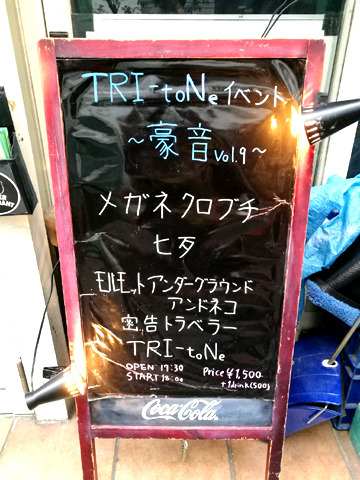 TRI-toNe イベント
～豪音 Vol.9～
メガネクロブチ
七歹
モルモットアンダーグラウンド
アンドネコ
宣告トラベラー
TRI-toNe
OPEN 17:30
START 18:00
Price ¥1,500
+1drink(500)
Coca-Cola